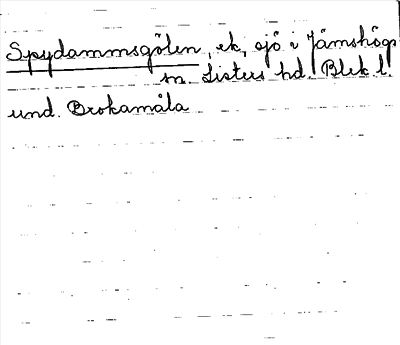 Spydammsgölen, ek, sjö i Jämshögs
sn. Listers hd. Blek. l.
und. Brokamåla